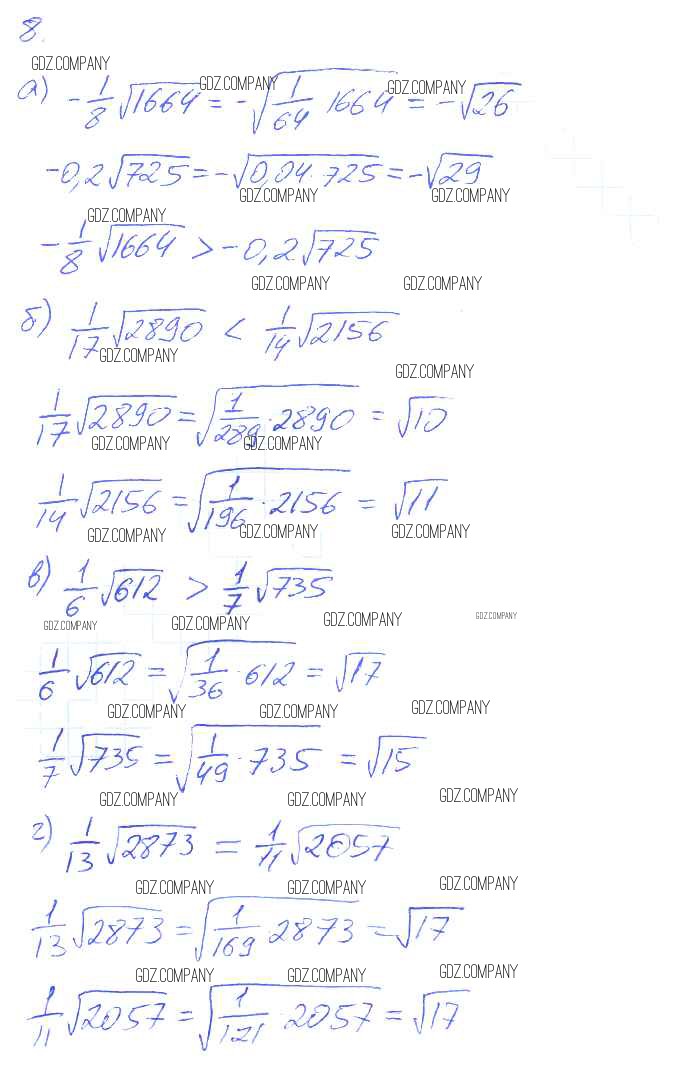 8.
GDZ.COMPANY
а) -1/8 √1664 = -√(1/64 · 1664) = -√26
GDZ.COMPANY GDZ.COMPANY
-0,2√725 = -√(0,04 · 725) = -√29
GDZ.COMPANY GDZ.COMPANY
GDZ.COMPANY
-1/8 √1664 > -0,2√725
GDZ.COMPANY GDZ.COMPANY
б) 1/17 √2890 < 1/14 √2156
GDZ.COMPANY GDZ.COMPANY
1/17 √2890 = √(1/289 · 2890) = √10
GDZ.COMPANY GDZ.COMPANY
1/14 √2156 = √(1/196 · 2156) = √11
GDZ.COMPANY GDZ.COMPANY GDZ.COMPANY
в) 1/6 √612 > 1/7 √735
GDZ.COMPANY GDZ.COMPANY GDZ.COMPANY GDZ.COMPANY
1/6 √612 = √(1/36 · 612) = √17
GDZ.COMPANY GDZ.COMPANY GDZ.COMPANY
1/7 √735 = √(1/49 · 735) = √15
GDZ.COMPANY GDZ.COMPANY GDZ.COMPANY
г) 1/13 √2873 = 1/11 √2057
GDZ.COMPANY GDZ.COMPANY GDZ.COMPANY
1/13 √2873 = √(1/169 · 2873) = √17
GDZ.COMPANY GDZ.COMPANY GDZ.COMPANY
1/11 √2057 = √(1/121 · 2057) = √17